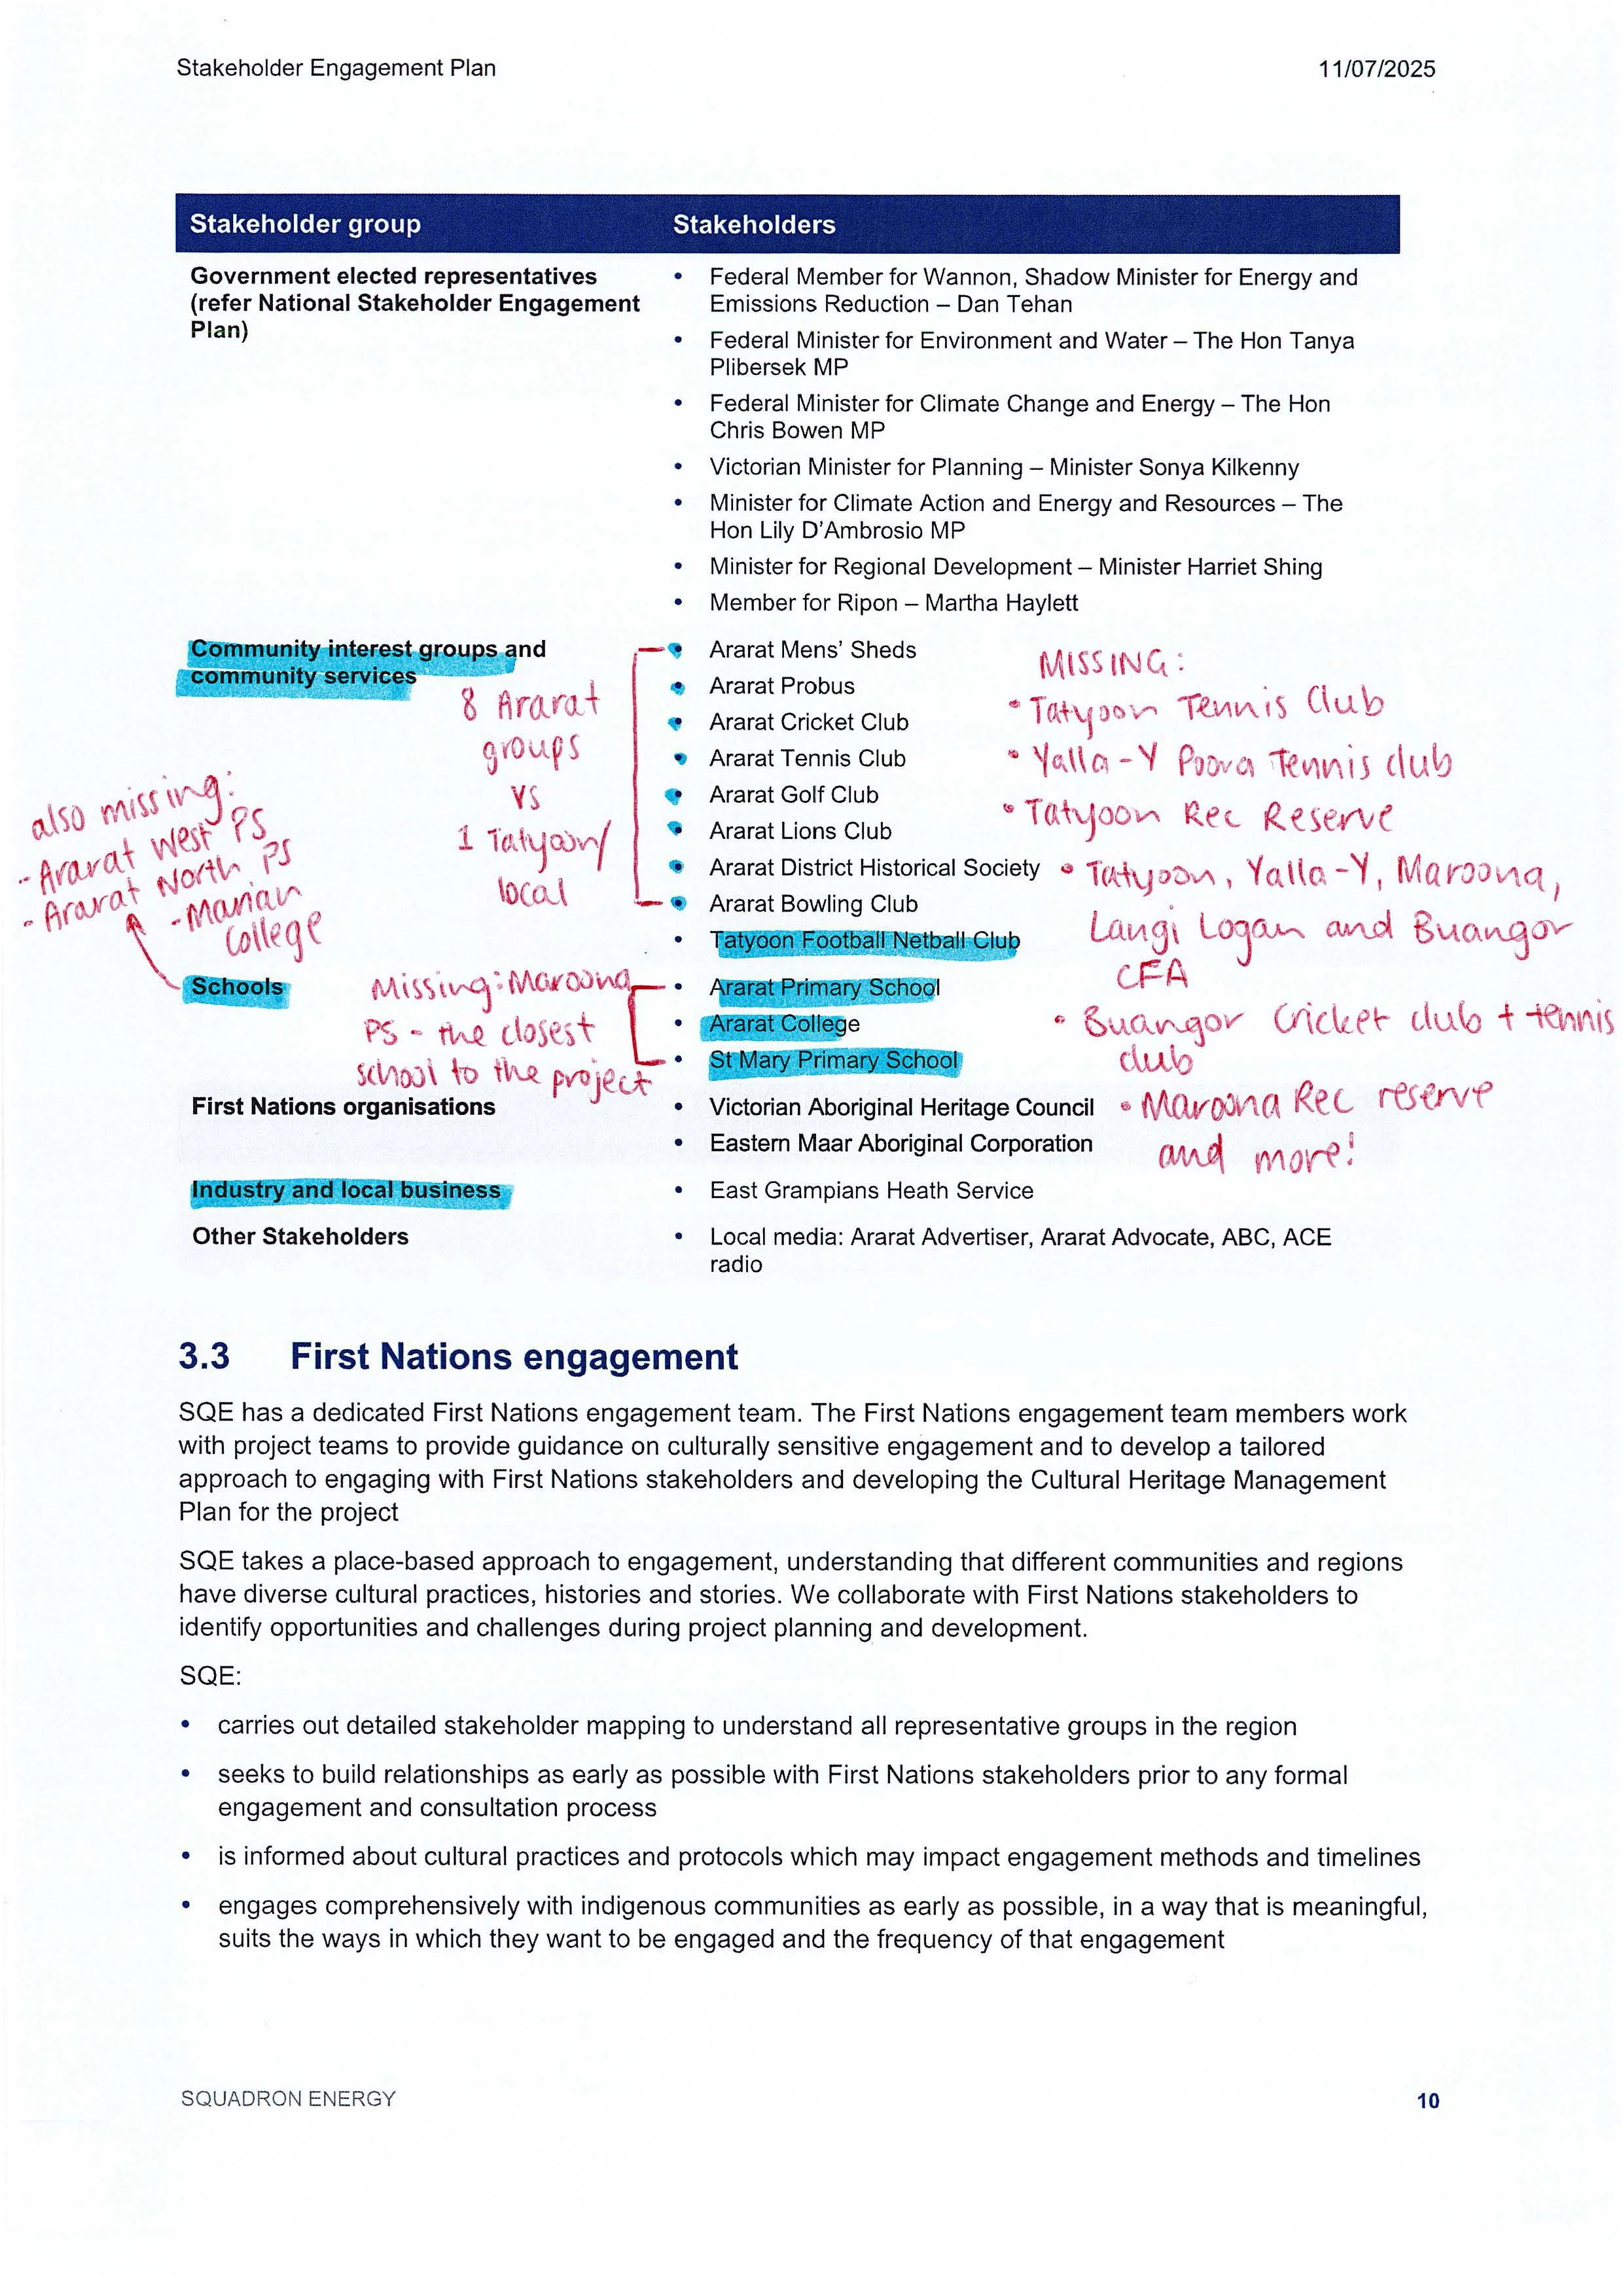 Stakeholder Engagement Plan
11/07/2025
Stakeholder group
Stakeholders
Government elected representatives
(refer National Stakeholder Engagement
Plan)
• Federal Member for Wannon, Shadow Minister for Energy and
Emissions Reduction – Dan Tehan
• Federal Minister for Environment and Water – The Hon Tanya
Plibersek MP
• Federal Minister for Climate Change and Energy – The Hon
Chris Bowen MP
• Victorian Minister for Planning – Minister Sonya Kilkenny
• Minister for Climate Action and Energy and Resources – The
Hon Lily D'Ambrosio MP
• Minister for Regional Development – Minister Harriet Shing
• Member for Ripon – Martha Haylett
Community interest groups and
community services
8 Ararat
groups
vs
1 Tatyoon/
local
• Ararat Mens' Sheds
• Ararat Probus
• Ararat Cricket Club
• Ararat Tennis Club
• Ararat Golf Club
• Ararat Lions Club
• Ararat District Historical Society
• Ararat Bowling Club
• Tatyoon Football Netball Club
MISSING:
• Tatyoon Tennis Club
• Yalla-Y Poora Tennis club
• Tatyoon Rec Reserve
• Tatyoon, Yalla-Y, Maroona,
Langi Logan and Buangor
CFA
• Buangor Cricket club + tennis
club
• Maroona Rec reserve
and more!
also missing:
- Ararat West PS
- Ararat North PS
- Marian
College
Schools
Missing: Maroona
PS - the closest
school to the project
• Ararat Primary School
• Ararat College
• St Mary Primary School
First Nations organisations
• Victorian Aboriginal Heritage Council
• Eastern Maar Aboriginal Corporation
Industry and local business
• East Grampians Heath Service
Other Stakeholders
• Local media: Ararat Advertiser, Ararat Advocate, ABC, ACE
radio
3.3 First Nations engagement
SQE has a dedicated First Nations engagement team. The First Nations engagement team members work
with project teams to provide guidance on culturally sensitive engagement and to develop a tailored
approach to engaging with First Nations stakeholders and developing the Cultural Heritage Management
Plan for the project
SQE takes a place-based approach to engagement, understanding that different communities and regions
have diverse cultural practices, histories and stories. We collaborate with First Nations stakeholders to
identify opportunities and challenges during project planning and development.
SQE:
• carries out detailed stakeholder mapping to understand all representative groups in the region
• seeks to build relationships as early as possible with First Nations stakeholders prior to any formal
engagement and consultation process
• is informed about cultural practices and protocols which may impact engagement methods and timelines
• engages comprehensively with indigenous communities as early as possible, in a way that is meaningful,
suits the ways in which they want to be engaged and the frequency of that engagement
SQUADRON ENERGY
10